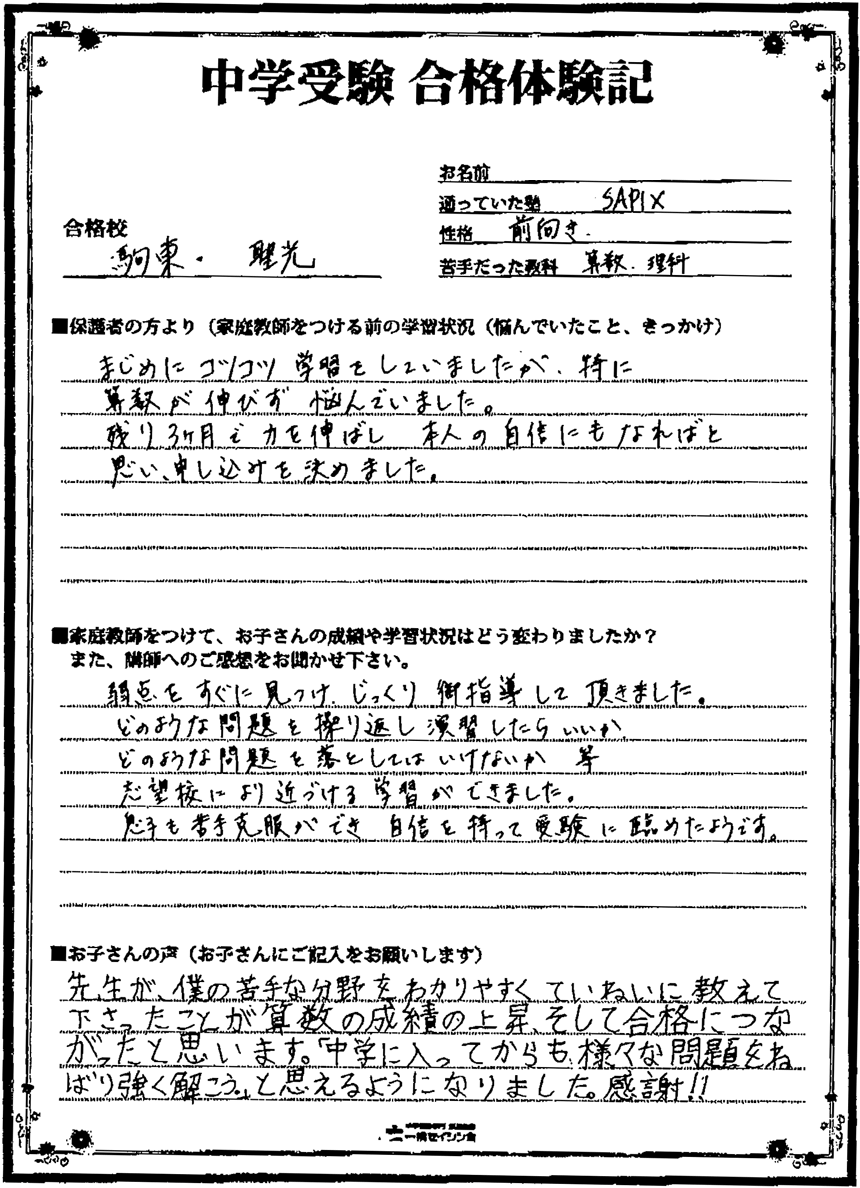 中学受験 合格体験記
お名前
通っていた塾 SAPIX
合格校
性格 前向き.
駒東・聖光
苦手だった教科 算数.理科
■保護者の方より（家庭教師をつける前の学習状況（悩んでいたこと、きっかけ）
まじめにコツコツ学習をしていましたが、特に
算数が伸びず 悩んでいました。
残り3ヶ月で力を伸ばし 本人の自信にもなればと
思い、申し込みを決めました。
■家庭教師をつけて、お子さんの成績や学習状況はどう変わりましたか？
また、講師へのご感想をお聞かせ下さい。
弱点をすぐに見つけ、じっくり御指導して頂きました。
どのような問題を繰り返し演習したらいいか、
どのような問題を落としてはいけないか 等
志望校により近づける学習ができました。
息子も苦手克服ができ 自信を持って受験に臨めたようです。
■お子さんの声（お子さんにご記入をお願いします）
先生が、僕の苦手な分野をわかりやすくていねいに教えて
下さったことが算数の成績の上昇、そして合格につな
がったと思います。「中学に入ってからも、様々な問題をね
ばり強く解こう。」と思えるようになりました。感謝!!
一橋セイシン会